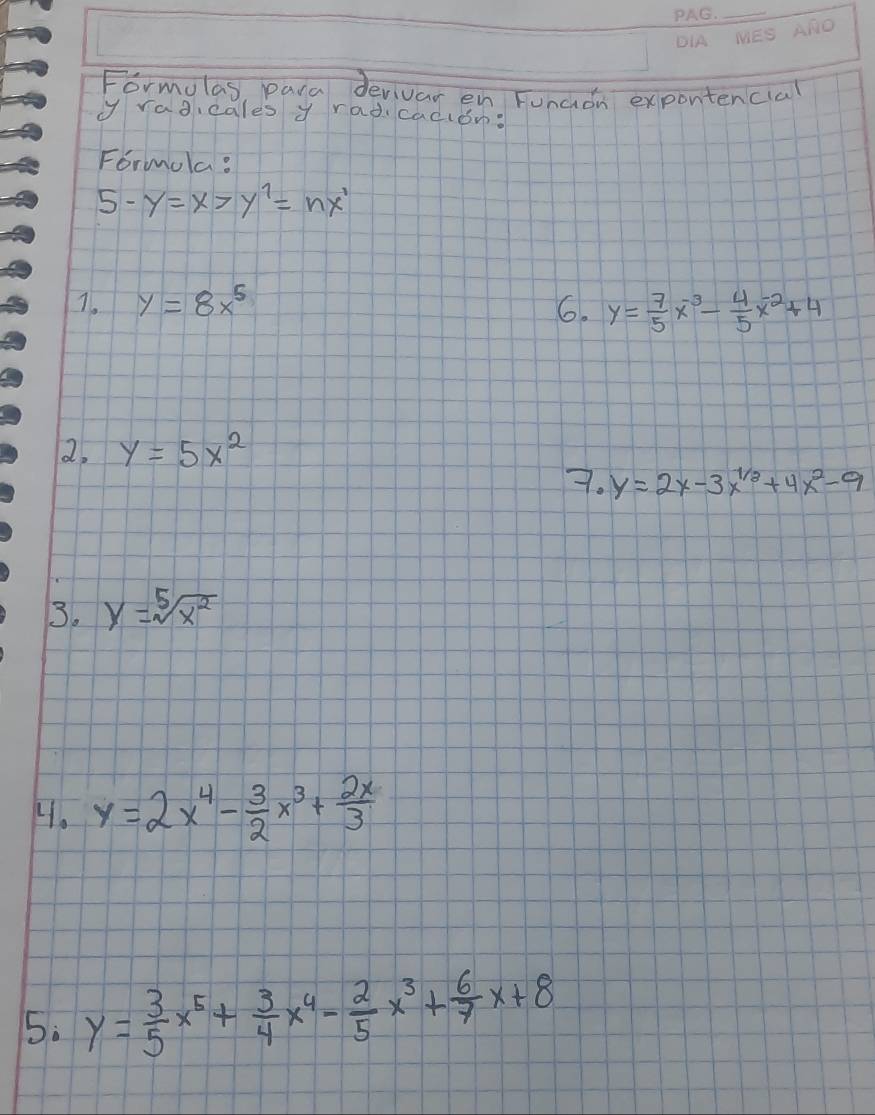 PAG.
DIA MES AÑO
Fórmulas para derivar en Función expontencial
y radicales y radicación:
Fórmula:
5 - y = x > y¹ = nx¹
1. y = 8x⁵
6. y = 7/5 x⁻³ - 4/5 x⁻² + 4
2. y = 5x²
7. y = 2x - 3x^1/2 + 4x² - 9
3. y = ⁵√x²
4. y = 2x⁴ - 3/2 x³ + 2x/3
5. y = 3/5 x⁵ + 3/4 x⁴ - 2/5 x³ + 6/7 x + 8